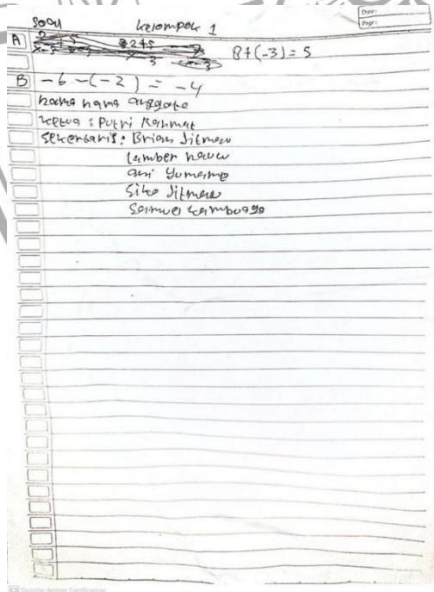 Soal Kelompok 1
A 8+(-3) = 5
B -6-(-2) = -4
nama nama anggota
ketua : Putri Rahmat
sekertaris : Brian Jitmau
Lamber
ani Yumame
Silo Jitmau
Samuel